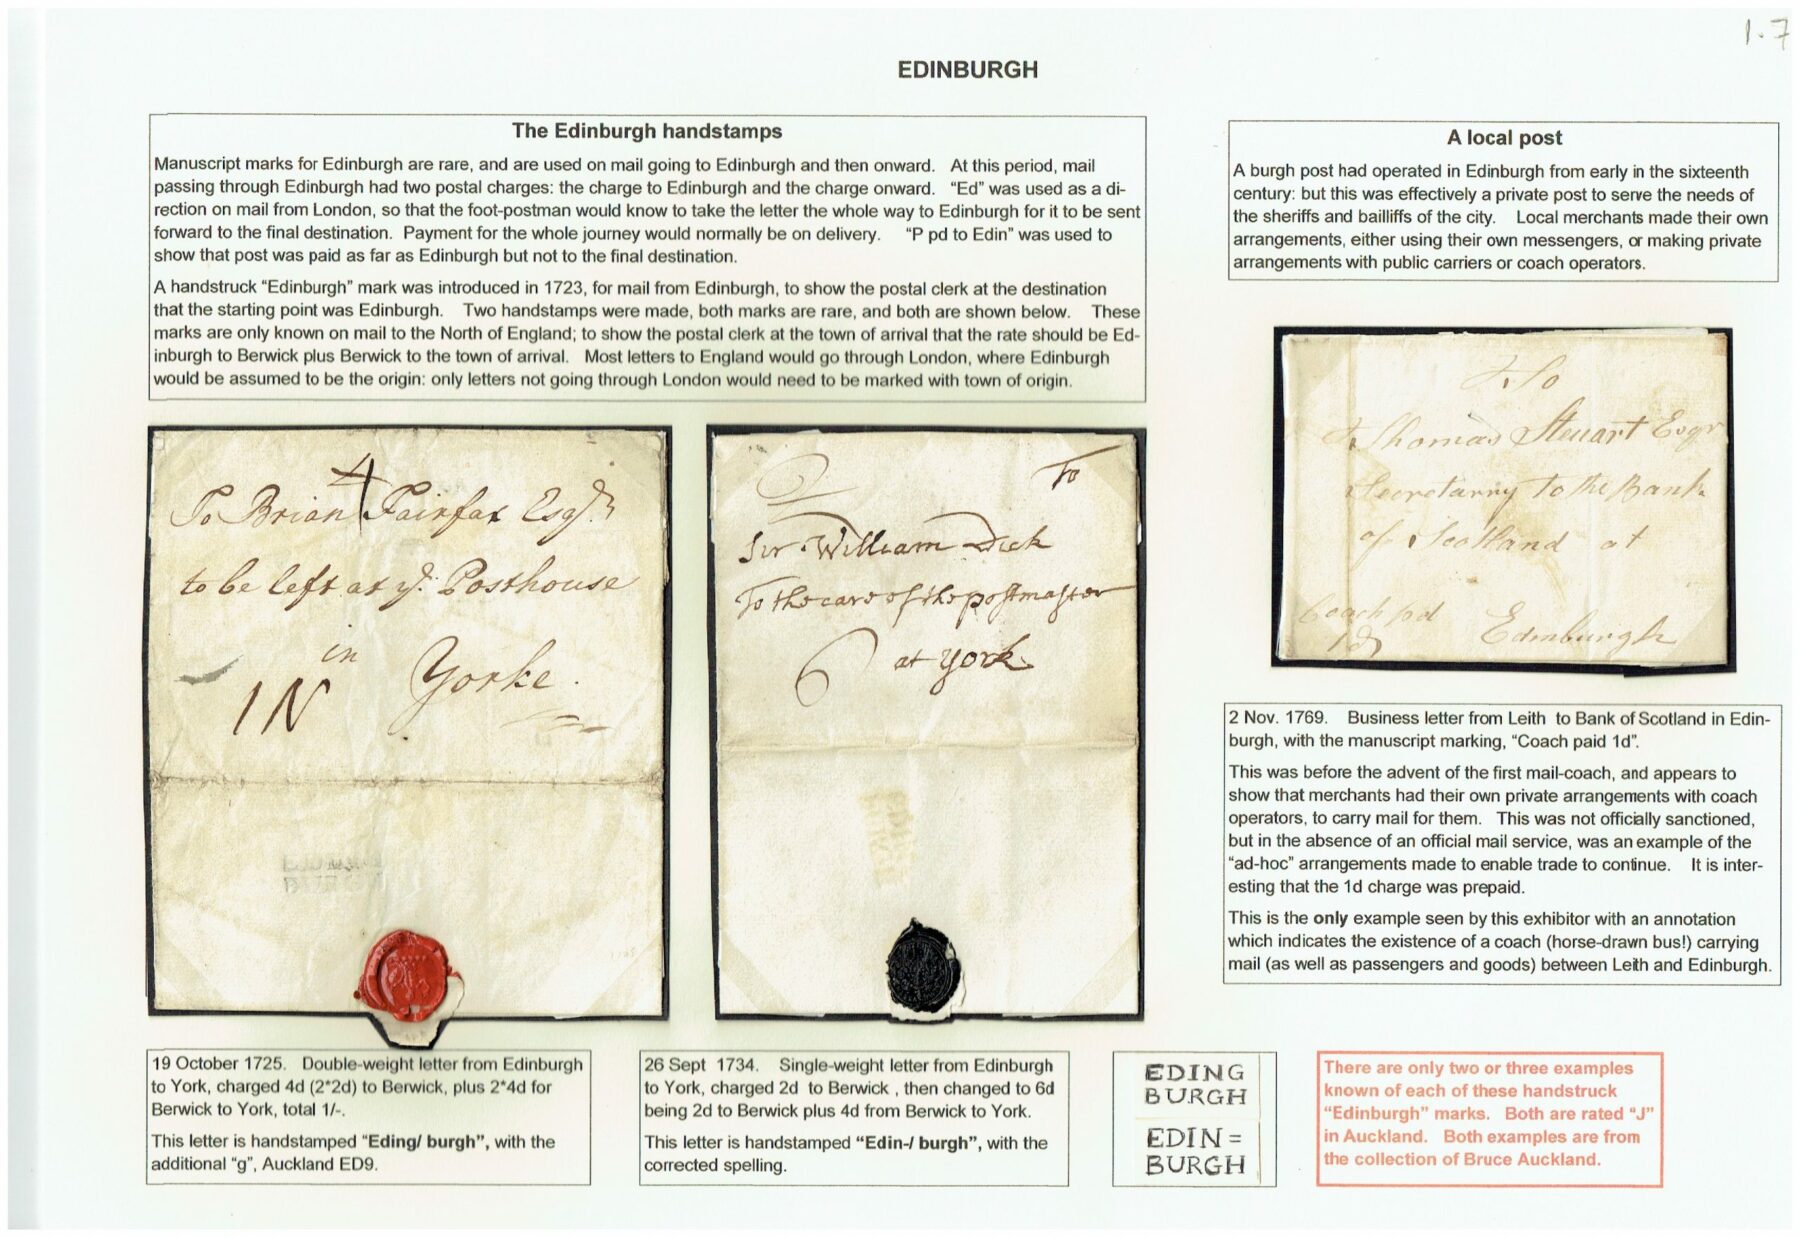 1.7
EDINBURGH
The Edinburgh handstamps
Manuscript marks for Edinburgh are rare, and are used on mail going to Edinburgh and then onward. At this period, mail
passing through Edinburgh had two postal charges: the charge to Edinburgh and the charge onward. “Ed” was used as a di-
rection on mail from London, so that the foot-postman would know to take the letter the whole way to Edinburgh for it to be sent
forward to the final destination. Payment for the whole journey would normally be on delivery. “P pd to Edin” was used to
show that post was paid as far as Edinburgh but not to the final destination.
A handstruck “Edinburgh” mark was introduced in 1723, for mail from Edinburgh, to show the postal clerk at the destination
that the starting point was Edinburgh. Two handstamps were made, both marks are rare, and both are shown below. These
marks are only known on mail to the North of England; to show the postal clerk at the town of arrival that the rate should be Ed-
inburgh to Berwick plus Berwick to the town of arrival. Most letters to England would go through London, where Edinburgh
would be assumed to be the origin: only letters not going through London would need to be marked with town of origin.
A local post
A burgh post had operated in Edinburgh from early in the sixteenth
century: but this was effectively a private post to serve the needs of
the sheriffs and bailliffs of the city. Local merchants made their own
arrangements, either using their own messengers, or making private
arrangements with public carriers or coach operators.
4
To Brian Fairfax Esqr.
to be left at ye Posthouse
in
Yorke.
1N
To
Sir William Dick
To the care of the postmaster
at York
6
To
Thomas Steuart Esqr
Secretarry to the Bank
of Scotland at
Edinburgh
Coach pd
1d
2 Nov. 1769. Business letter from Leith to Bank of Scotland in Edin-
burgh, with the manuscript marking, “Coach paid 1d”.
This was before the advent of the first mail-coach, and appears to
show that merchants had their own private arrangements with coach
operators, to carry mail for them. This was not officially sanctioned,
but in the absence of an official mail service, was an example of the
“ad-hoc” arrangements made to enable trade to continue. It is inter-
esting that the 1d charge was prepaid.
This is the only example seen by this exhibitor with an annotation
which indicates the existence of a coach (horse-drawn bus!) carrying
mail (as well as passengers and goods) between Leith and Edinburgh.
19 October 1725. Double-weight letter from Edinburgh
to York, charged 4d (2*2d) to Berwick, plus 2*4d for
Berwick to York, total 1/-.
This letter is handstamped “Eding/ burgh”, with the
additional “g”, Auckland ED9.
26 Sept 1734. Single-weight letter from Edinburgh
to York, charged 2d to Berwick , then changed to 6d
being 2d to Berwick plus 4d from Berwick to York.
This letter is handstamped “Edin-/ burgh”, with the
corrected spelling.
EDING
BURGH
EDIN=
BURGH
There are only two or three examples
known of each of these handstruck
“Edinburgh” marks. Both are rated “J”
in Auckland. Both examples are from
the collection of Bruce Auckland.